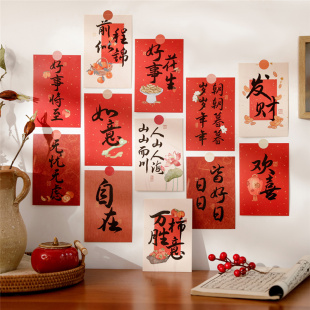 前程
似錦
好事
花生
朝朝暮暮
岁岁年年
发财
好事将至
如意
人山人海
山山而川
欢喜
无忧无虑
自在
皆好日
日日
万柿
胜意